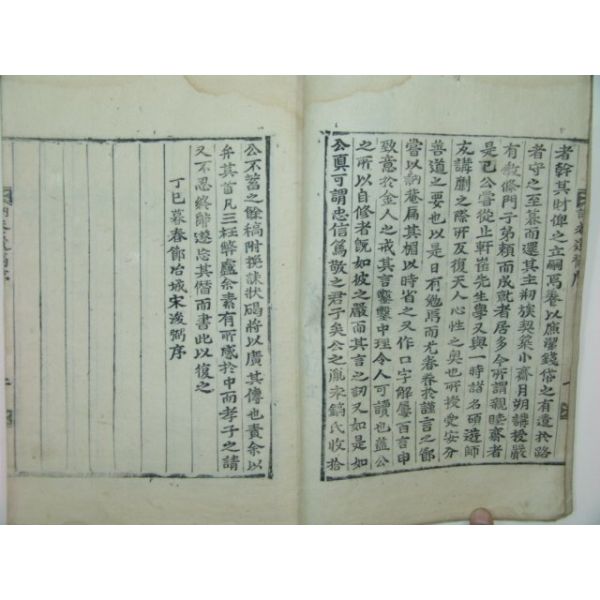 者幹其財俾之立嗣爲養以廉潔錢俗之有遺於路
者守之至暮而還其主糾族契築小齋月朔講授嚴
有敎條門子弟賴而成就者居多今所謂親睦齋者
是已公嘗從止軒崔先生學又與一時諸名碩遊師
友講劘之際所反復天人心性之奧也所授受安分
善道之要也以是日有勉焉而尤眷眷於謹言之節
嘗以訥菴扁其楣以時省之又作口字解屢百言申
致意於金人之戒其言鑿鑿中理令人可讀也盖公
之所以自修者旣如彼之嚴而其言之訒又如是如
公眞可謂忠信篤敬之君子矣公之胤禾鎬氏收拾
公不蓄之餘稿附挽誄狀碣將以廣其傳也責余以
弁其首凡三枉弊廬余素有所感於中而孝子之請
又不忍終辭遂忘其僭而書此以復之
丁巳暮春節冶城宋浚弼序